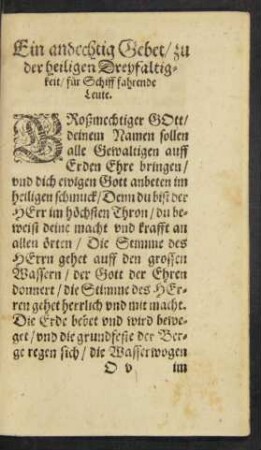 Ein andechtig Gebet/ zu
der heiligen Dreyfaltig-
keit/ für Schiff fahrende
Leute.
GRoßmechtiger GOtt/
deinem Namen sollen
alle Gewaltigen auff
Erden Ehre bringen/
vnd dich ewigen Gott anbeten im
heiligen schmuck/ Denn du bist der
HErr im höchsten Thron/ du be-
weist deine macht vnd krafft an
allen örten/ Die Stimme des
HErrn gehet auff den grossen
Wassern/ der Gott der Ehren
donnert/ die Stimme des HEr-
ren gehet herrlich vnd mit macht.
Die Erde bebet vnd wird bewe-
get/ vnd die grundfeste der Ber-
ge regen sich/ die Wasserwogen
O v im